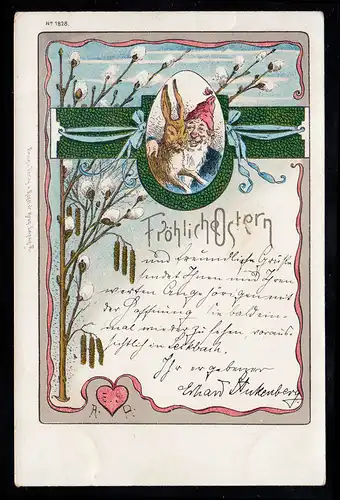 No 1828.
Fröhliche Ostern
und freundliche Grüße
sendet Ihnen und Ihren
werten Angehörigen mit
der Hoffnung Sie bald ein-
mal wieder zu sehen, voraus-
sichtlich in
Ihr ergebener
Erhard Stukenberg.